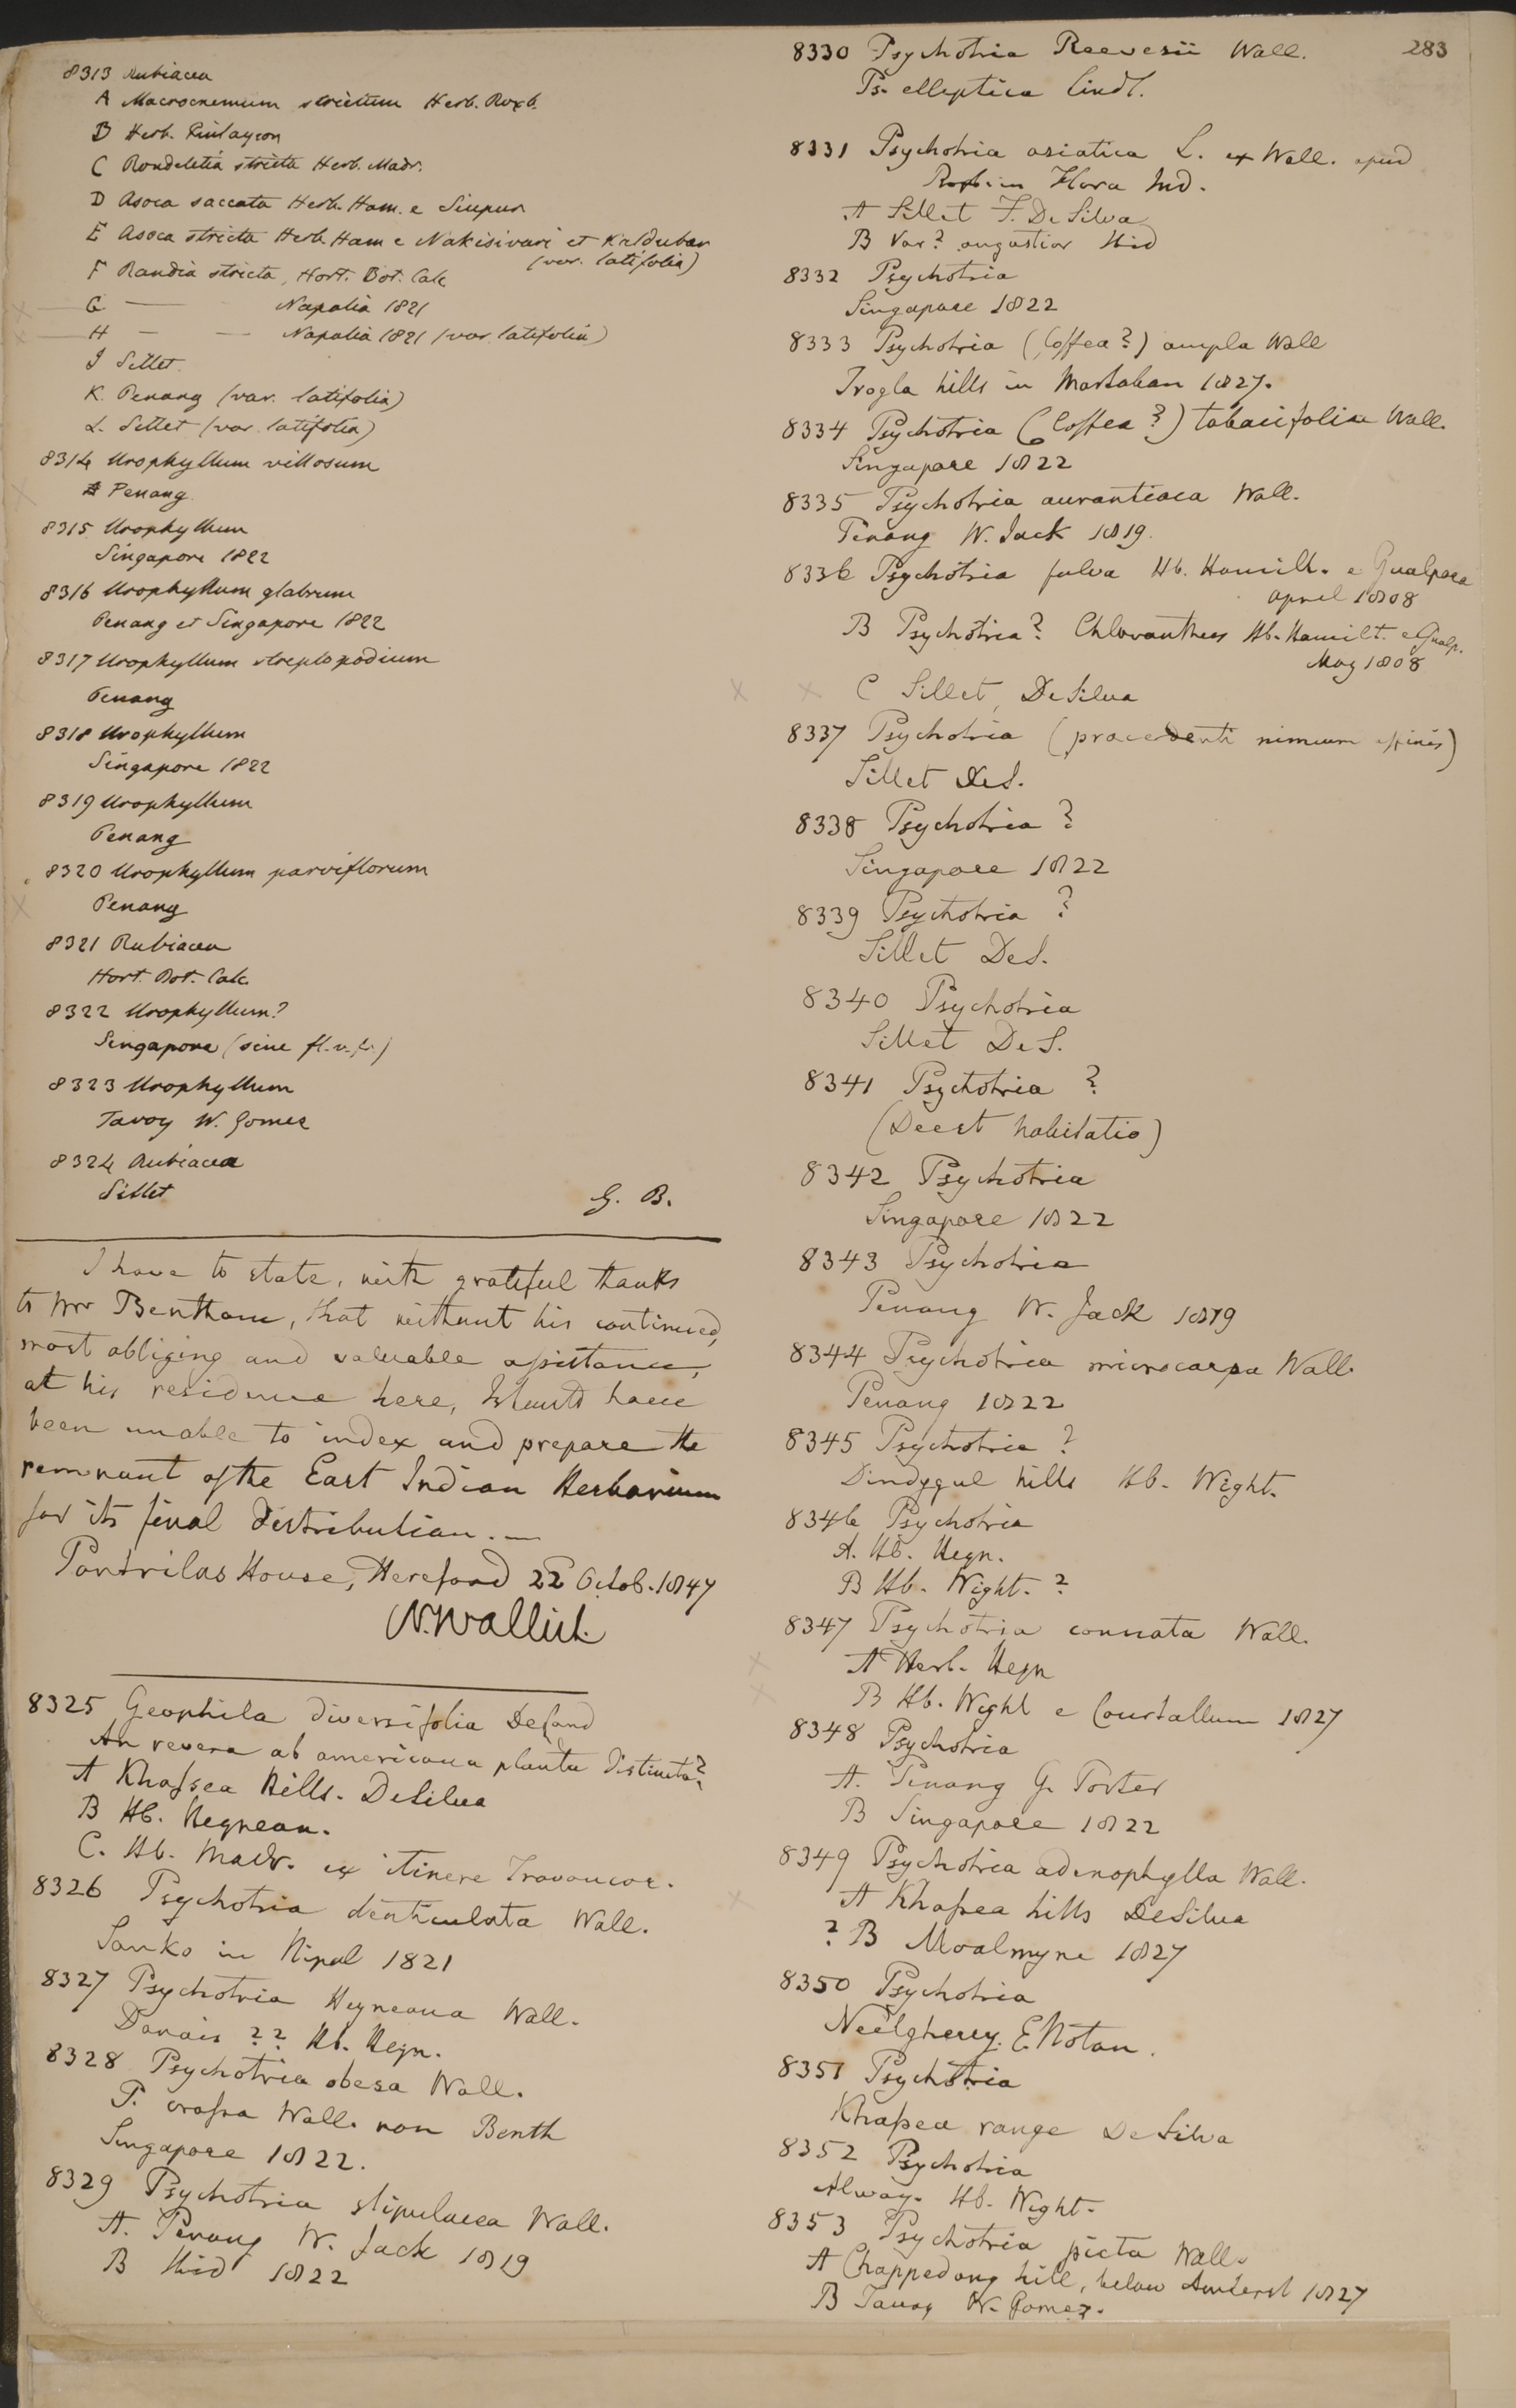 8313 Rubiacea
A Macrocnemum strictum Herb. Roxb.
B Herb. Finlayson
C Rondeletia stricta Herb. Madr.
D Asoca saccata Herb. Ham. e Sinpur
E Asoca stricta Herb. Ham e Nakisivari et
(var. latifolia)
F Randia stricta, Hort. Bot. Calc
G — Napalia 1821
H — — Napalia 1821 (var. latifolia)
J Sillet.
K. Penang (var. latifolia)
L. Sillet (var. latifolia)
8314 Urophyllum villosum
Penang.
8315 Urophyllum
Singapore 1822
8316 Urophyllum glabrum
Penang et Singapore 1822
8317 Urophyllum streptopodium
Penang
8318 Urophyllum
Singapore 1822
8319 Urophyllum
Penang
8320 Urophyllum parviflorum
Penang
8321 Rubiacea
Hort. Bot. Calc.
8322 Urophyllum?
Singapore (sine fl. v. fr.)
8323 Urophyllum
Tavoy W. Gomez
8324 Rubiacea
Sillet
G. B.
I have to state, with grateful thanks
to Mr Bentham, that without his continued,
most obliging and valuable assistance,
at his residence here, I should have
been unable to index and prepare the
remnant of the East Indian Herbarium
for its final distribution. —
Pontrilas House, Hereford 22d Octob. 1847
N. Wallich.
8325 Geophila diversifolia Decand
An revera ab americana planta distincta?
A Khassea Hills. DeSilva
B Hb. Heynean.
C. Hb. Madr. ex itinere Travancor.
8326 Psychotria denticulata Wall.
Sanko in Nipal 1821
8327 Psychotria Heyneana Wall.
Danais ?? Hb. Heyn.
8328 Psychotria obesa Wall.
P. crassa Wall. non Benth
Singapore 1822.
8329 Psychotria stipulacea Wall.
A. Penang W. Jack 1819
B Ibid 1822
283
8330 Psychotria Reevesii Wall.
Ps. elleptica Lindl.
8331 Psychotria asiatica L. ex Wall. apud
Roxb. in Flora Ind.
A Sillet F. De Silva
B Var? angustior Ibid
8332 Psychotria
Singapore 1822
8333 Psychotria (Coffea?) ampla Wall
Trogla hills in Martaban 1827.
8334 Psychotria (Coffea?) tabacifolia Wall.
Singapore 1822
8335 Psychotria aurantiaca Wall.
Penang W. Jack 1819.
8336 Psychotria fulva Hb. Hamilt. e Gualpara
April 1808
B Psychotria? Chloranthus Hb. Hamilt. e Gualp.
May 1808
C Sillet, De Silva
8337 Psychotria (precedenti nimium affinis)
Sillet DeS.
8338 Psychotria ?
Singapore 1822
8339 Psychotria ?
Sillet DeS.
8340 Psychotria
Sillet De S.
8341 Psychotria ?
(Deest habitatio)
8342 Psychotria
Singapore 1822
8343 Psychotria
Penang W. Jack 1819
8344 Psychotria microcarpa Wall.
Penang 1822
8345 Psychotria ?
Dindygul hills Hb. Wight.
8346 Psychotria
A. Hb. Heyn.
B Hb. Wight. ?
8347 Psychotria connata Wall.
A Herb. Heyn
B Hb. Wight e Courtallum 1827
8348 Psychotria
A. Penang G. Porter
B Singapore 1822
8349 Psychotria adenophylla Wall.
A Khassea hills DeSilva
? B Moalmyne 1827
8350 Psychotria
Neelgherry. E Notan.
8351 Psychotria
Khassea range De Silva
8352 Psychotria
Alway. Hb. Wight.
8353 Psychotria picta Wall.
A Chappedong hill, below Amherst 1827
B Tavoy W. Gomez.